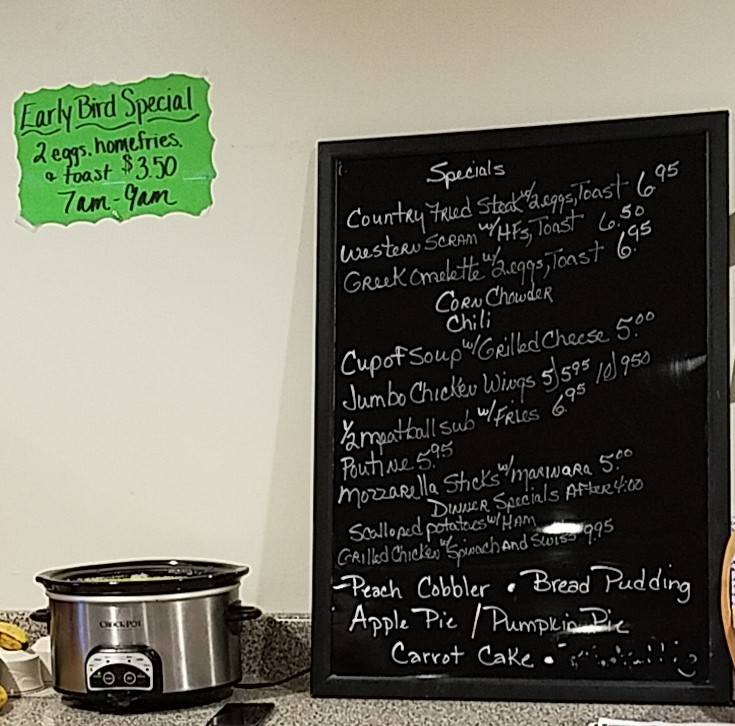 Early Bird Special
2 eggs. homefries.
& toast $3.50
7am-9am
Specials
Country Fried Steak w/ 2 eggs, Toast 6.95
Western Scram w/ HFs, Toast 6.50
Greek Omelette w/ 2 eggs, Toast 6.95
Corn Chowder
Chili
Cup of Soup w/ Grilled Cheese 5.00
Jumbo Chicken Wings 5) 5.95 / 10) 9.50
1/2 meatball sub w/ Fries 6.95
Poutine 5.95
Mozzarella Sticks w/ marinara 5.00
Dinner Specials After 4:00
Scalloped potatoes w/ Ham
Grilled Chicken w/ Spinach And Swiss 9.95
-Peach Cobbler • Bread Pudding
Apple Pie / Pumpkin Pie
Carrot Cake •
CROCK-POT